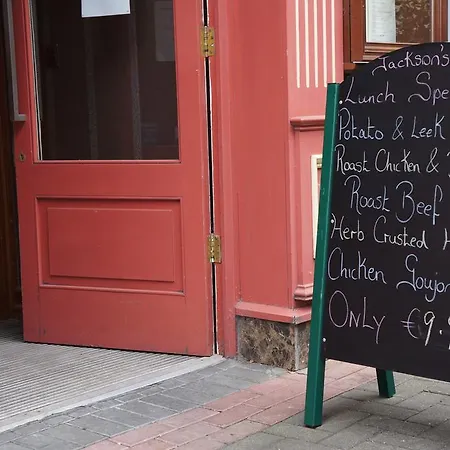 Jackson's
Lunch Spe
Potato & Leek
Roast Chicken &
Roast Beef
Herb Crusted H
Chicken Goujon
ONLY €9.